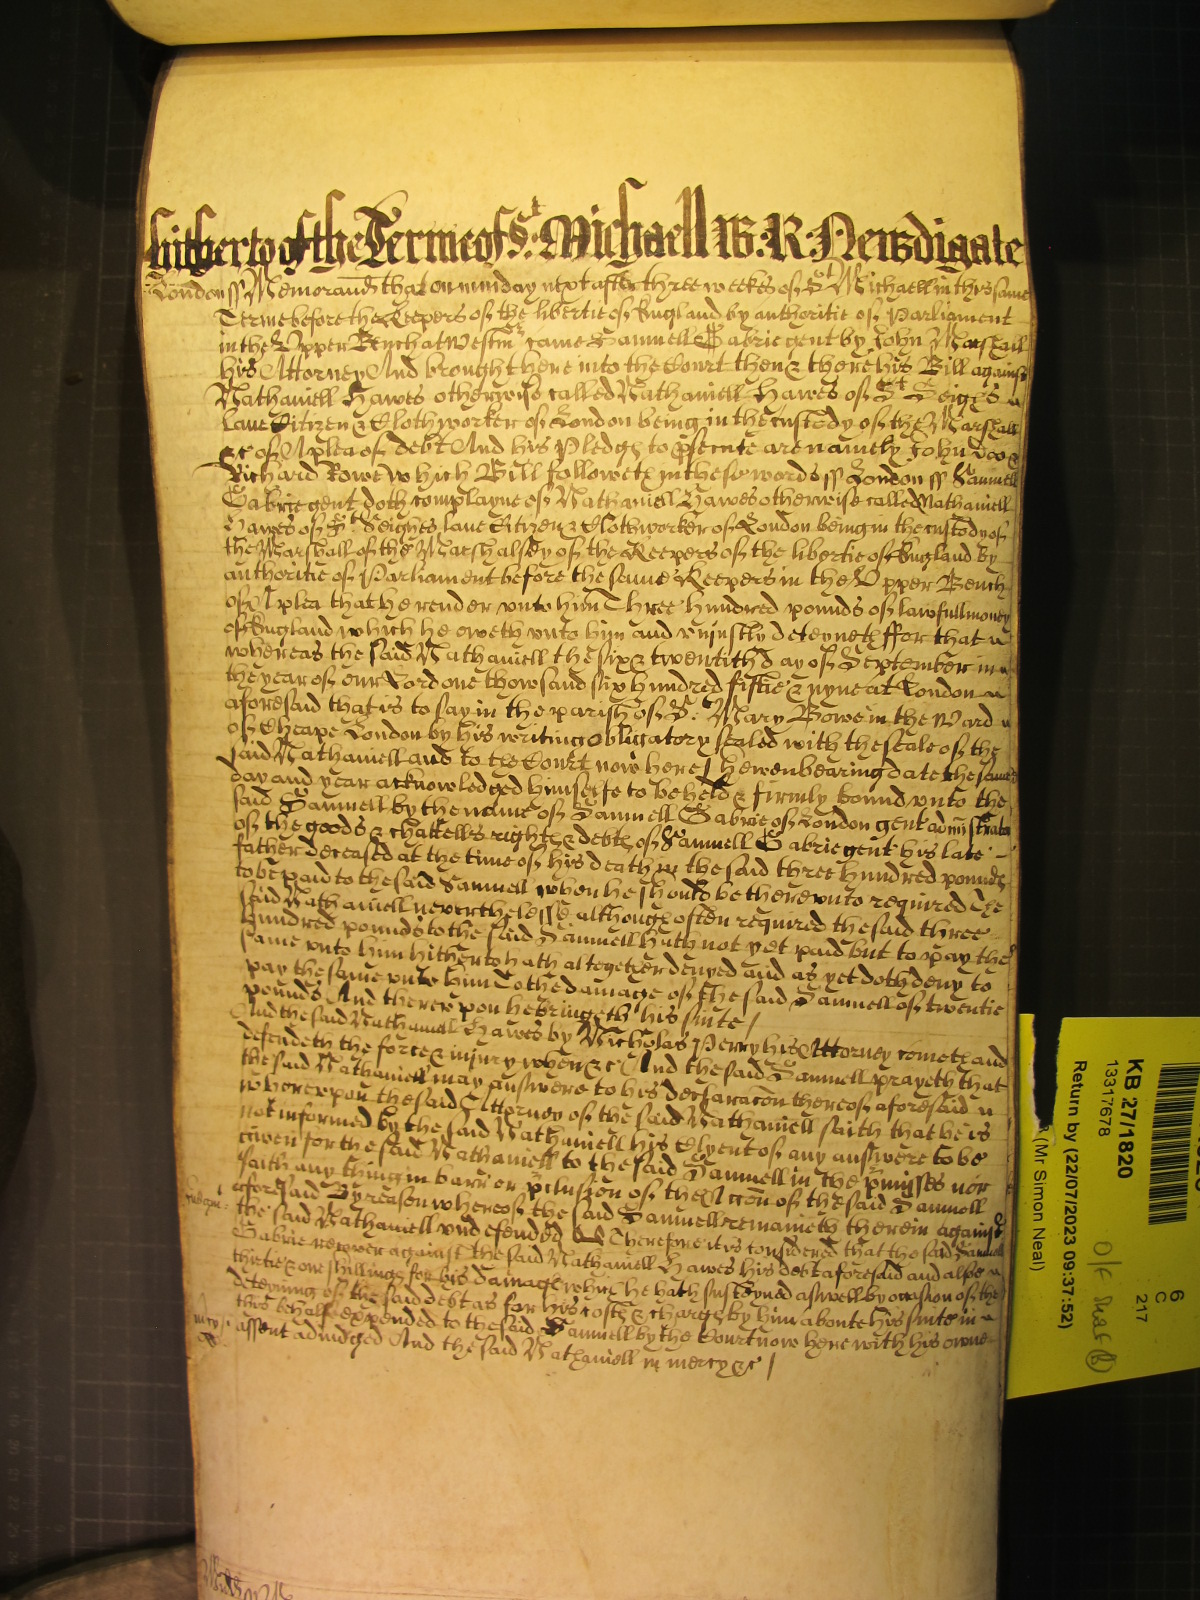 hitherto of the Terme of St. Michaell W. R. Newdigate
London ss Memorand that on munday next after three weekes of St Michaell in this same
Terme before the Keepers of the libertie of England by authoritie of Parliament
in the Upper Bench at Westmr came Samuell Gabrie gent by John Marshall
his Attorney And brought here into the Court then & there his Bill against
Nathaniell Hawes otherwise called Nathaniell Hawes of St
lane Citizen & Clothworker of London being in the custody of the Marshall
&c of A plea of debt And his Pledge to psecute are namely John Doo &
Richard Rowe Which Bill followeth in these words ss London ss Samuell
Gabrie gent doth complayne of Nathaniell Hawes otherwise called Nathaniell
Hawes of St. lane Citizen & Clothworker of London being in the custody of
the Marshall of the Marshalsey of the Keepers of the libertie of England by
authoritie of Parliament before the same Keepers in the Upper Bench
of A plea that he render unto him Three hundred pounds of lawfull money
of England which he oweth unto him and unjustly deteyneth ffor that
whereas the said Nathaniell the six & twentith day of September in
the year of our Lord one thowsand six hundred fiftie & nyne at London
aforesaid that is to say in the parish of St. Mary Bowe in the Ward
of Cheape London by his writing obligatory sealed with the seale of the
said Nathaniell and to the Court now here shewen bearing date the same
day and year acknowledged himselfe to be held & firmly bound unto the
said Samuell by the name of Samuell Gabrie of London gent administrator
of the goods & chattells rights & debts of Samuell Gabrie gent his late
father deceased at the time of his death in the said three hundred pounds
to be paid to the said Samuell when he should be thereunto required The
said Nathaniell neverthelesse although often required the said three
hundred pounds to the said Samuell hath not yet paid but to pay the
same unto him hitherto hath altogether denyed and as yet doth deny to
pay the same unto him To the damage of the said Samuell of twentie
pounds And thereupon he bringeth his suite /
And the said Nathaniell Hawes by Nicholas Perry his Attorney cometh and
defendeth the force & injury when &c And the said Samuell prayeth that
the said Nathaniell may answere to his declaracon thereof aforesaid
whereupon the said Attorney of the said Nathaniell saith that he is
not informed by the said Nathaniell his Clyent of any answere to be
given for the said Nathaniell to the said Samuell in the pmisses nor
saith any thing in barr or pclusion of the Accon of the said Samuell
aforesaid By reason whereof the said Samuell remaineth therein against
the said Nathaniell undefended Therefore it is considered that the said Samuell
Gabrie recover against the said Nathaniell Hawes his debt aforesaid and alsoe
thirtie & one shillings for his damage which he hath susteyned aswell by occasion of the
deteyning of the said debt as for his costs & charges by him aboute his suite in
this behalf expended to the said Samuell by the Court now here with his owne
assent adiudged And the said Nathaniell in mercy &c /
mcy
KB 27/1820
13317678
Return by (22/07/2023 09:37:52)
(Mr Simon Neal)
6
C
217